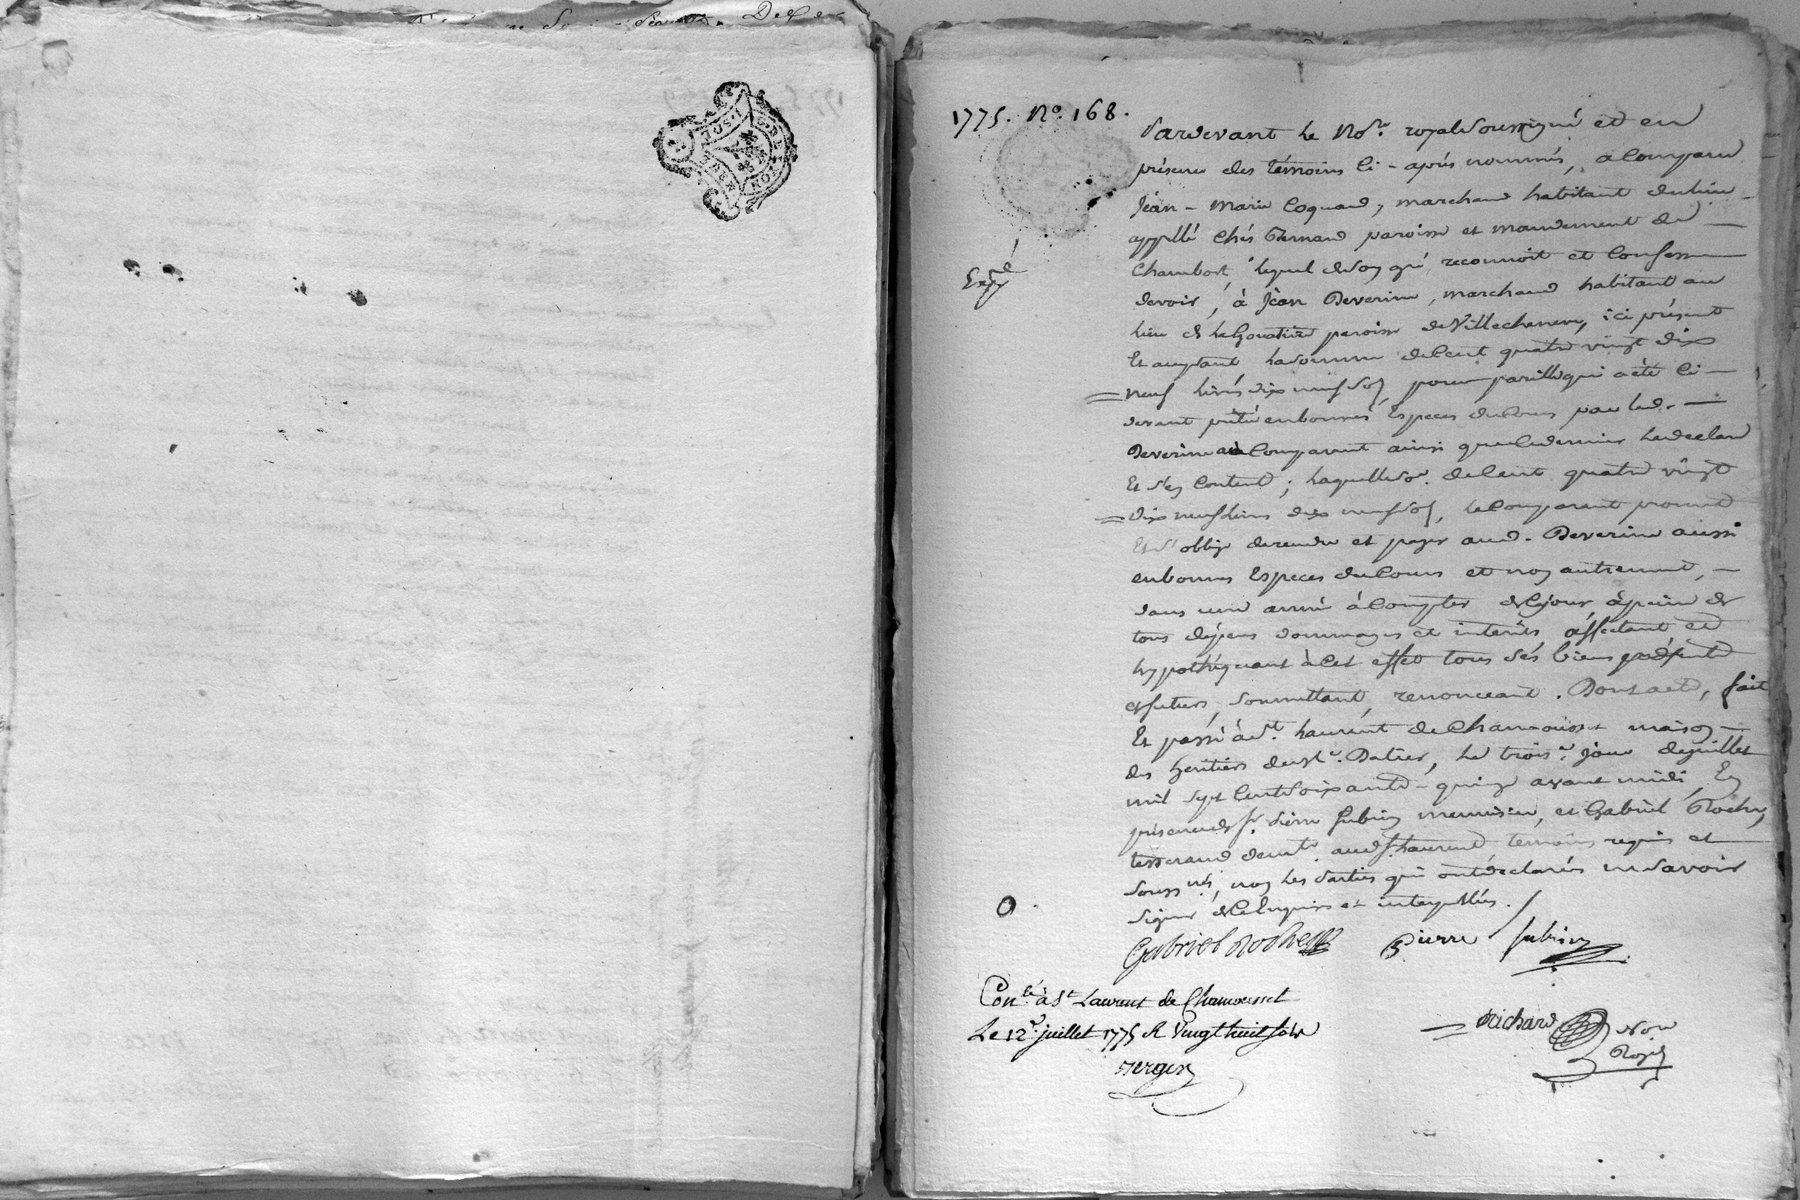 1775. No. 168.
Pardevant le Nore. royal soussigné et en
présence des témoins ci-après nommés, a comparu
Jean-Marie Coquard, marchand habitant du lieu
appellé chés Ferrand paroisse et mandement de
Chambost, lequel de son gré reconnoit et confesse
devoir, à Jean Deverine, marchand habitant au
Expé
lieu de paroisse de Villechenève, ici présent
et acceptant la somme de cent quatre vingt dix
neuf livres dix neuf sols, pour pareille qui a été ci-
devant prêtée en bonnes Especes du Cours par led.
Deverine au Comparant ainsi que ce dernier le declare
et s'en content; laquelle so. de cent quatre vingt
dix neuf livres dix neuf sols, le Comparant promet
et s'oblige de rendre et payer aud. Deverine aussi
en bonnes Especes du Cours et non autrement,
dans une année à Compter de ce jour, à peine de
tous dépens dommages et interêts, affectant et
hypothéquant à cet effet tous ses biens présents
et futurs, soumettant, renonceant. Dont acte, fait
et passé à St. Laurent de Chamousset maison
des heritiers de Sr. Datier, le trois e. jour de juillet
mil sept cent soixante-quinze avant midi, En
présence de Sr. Pierre Jubin menuisier, et Gabriel Roche,
tisserand demt. aud. St. Laurent temoins requis et
soussnés, non les Parties qui ont déclarés ne savoir
signer de ce Enquises et interpellées.
Gabriel Roche Pierre Jubin
Conlé. à St Laurent de Chamousset
Le 12e. juillet 1775 R Vingt huit sols
Richard Nore
Royal